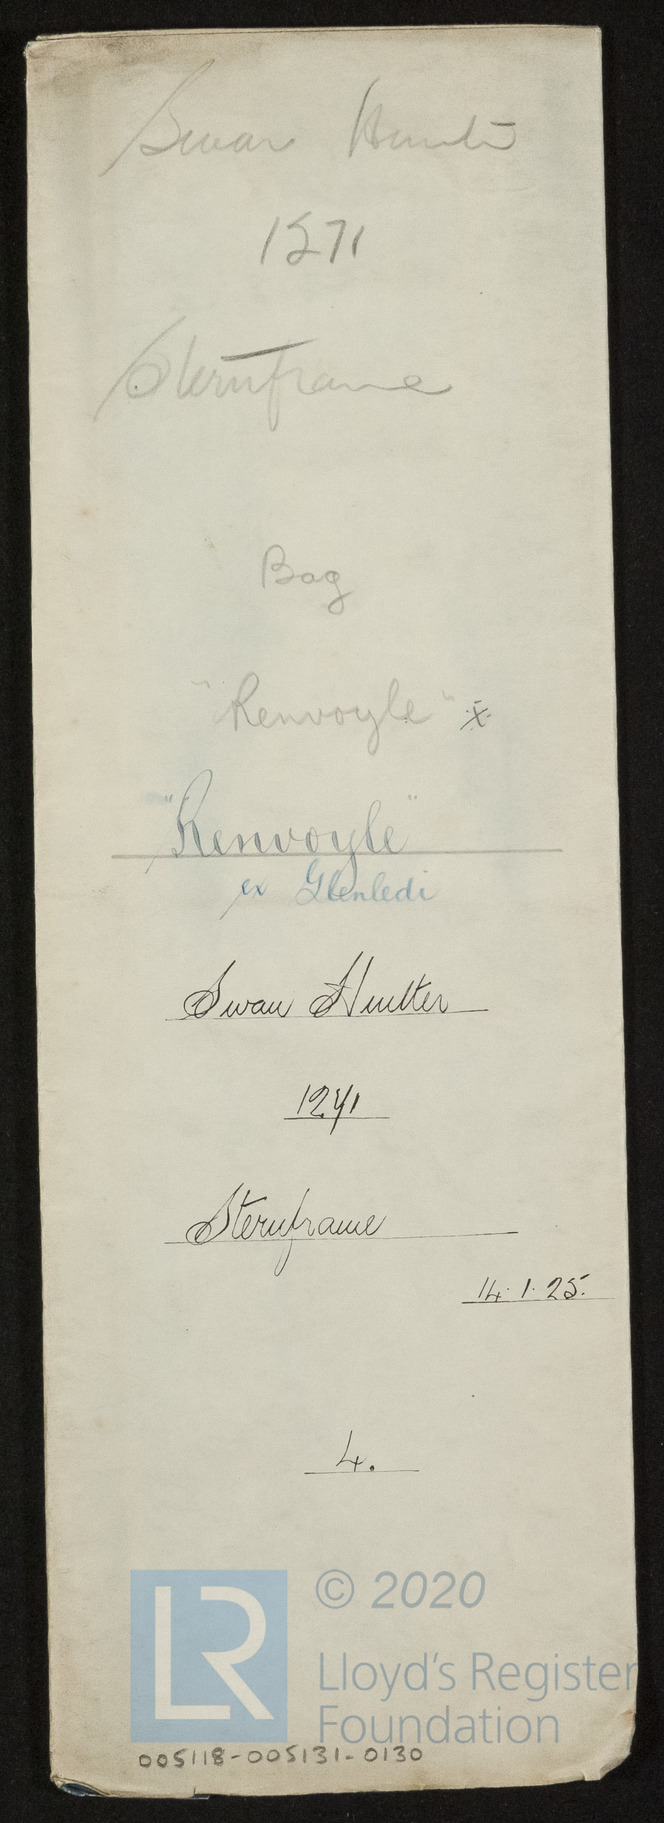 Swan Hunter
1271
Sternframe
Bag
"Renvoyle" x
"Renvoyle"
ex Glenledi
Swan Hunter
1271
Sternframe
14.1.25.
4.
LR
© 2020
Lloyd's Register
Foundation
005118-005131-0130